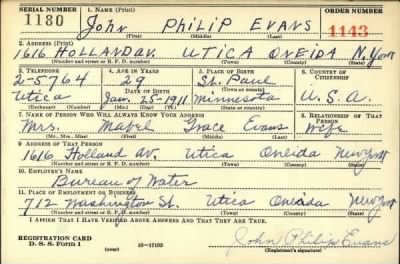 SERIAL NUMBER 1. NAME (Print) ORDER NUMBER
1180 John Philip Evans 1143
(First) (Middle) (Last)
2. ADDRESS (Print)
1616 HOLLAND AV. UTICA ONEIDA N.York
(Number and street or R. F. D. number) (Town) (County) (State)
3. TELEPHONE 4. AGE IN YEARS 5. PLACE OF BIRTH 6. COUNTRY OF CITIZENSHIP
2-5764 29 St. Paul
DATE OF BIRTH (Town or county)
Utica Jan. 25-1911 Minnesota U.S.A.
(Exchange) (Number) (Mo.) (Day) (Yr.) (State or country)
7. NAME OF PERSON WHO WILL ALWAYS KNOW YOUR ADDRESS 8. RELATIONSHIP OF THAT PERSON
Mrs. Mabel Grace Evans Wife
(Mr., Mrs., Miss) (First) (Middle) (Last)
9. ADDRESS OF THAT PERSON
1616 Holland av. Utica Oneida New York
(Number and street or R. F. D. number) (Town) (County) (State)
10. EMPLOYER'S NAME
Bureau of Water
11. PLACE OF EMPLOYMENT OR BUSINESS
712 Washington St. Utica Oneida New York
(Number and street or R. F. D. number) (Town) (County) (State)
I AFFIRM THAT I HAVE VERIFIED ABOVE ANSWERS AND THAT THEY ARE TRUE.
REGISTRATION CARD
D. S. S. Form 1 16-17105 John Philip Evans
(Registrant's signature)